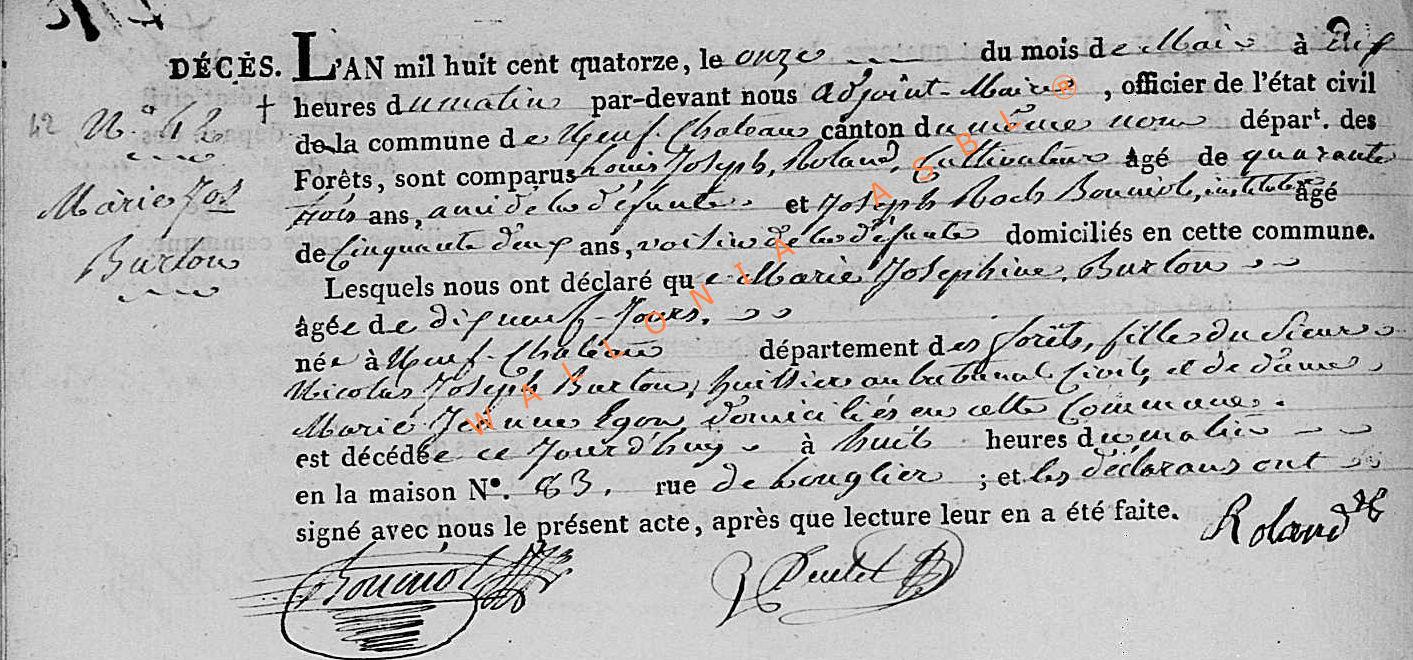 DÉCÈS. L'AN mil huit cent quatorze, le onze du mois de Mai à Dix
42 N.° 42 † heures du matin par-devant nous adjoint-Maire, officier de l'état civil
de la commune de Neuf-Chateau canton du même nom départ. des
Forêts, sont comparus Louis Joseph Roland, Cultivateur âgé de quarante
Marie Jos. trois ans, ami de la défunte et Joseph Roch Bouniol, instituteur âgé
Burton de Cinquante deux ans, voisin de la défunte domiciliés en cette commune.
Lesquels nous ont déclaré que Marie Josephine Burton
âgée de dix neuf Jours,
née à Neuf-Chateau département des forêts, fille du Sieur
Nicolas Joseph Burton, huissier au tribunal Civil, et de dame
Marie Jeanne Egon, domiciliés en cette Commune.
est décédée ce Jourd'huy à huit heures du matin
en la maison N°. 83, rue de Longlier ; et les déclarans ont
signé avec nous le présent acte, après que lecture leur en a été faite. Roland
Bouniol
WALLONIA ASBL ®